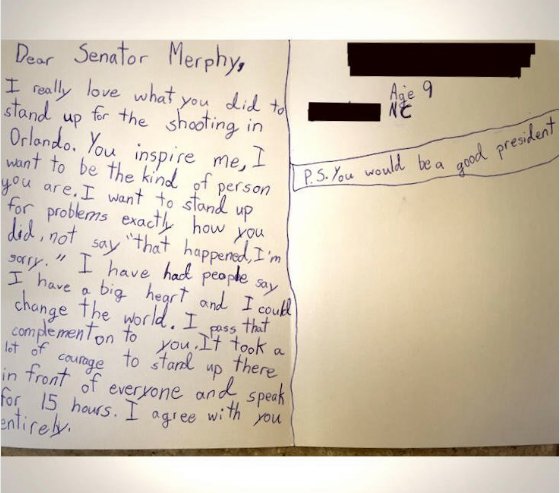 Dear Senator Merphy,
I really love what you did to
stand up for the shooting in
Orlando. You inspire me, I
want to be the kind of person
you are. I want to stand up
for problems exactly how you
did, not say "that happened, I'm
sorry." I have had people say
I have a big heart and I could
change the world. I pass that
complement on to you. It took a
lot of courage to stand up there
in front of everyone and speak
for 15 hours. I agree with you
entirely.
Age 9
NC
P.S. You would be a good president